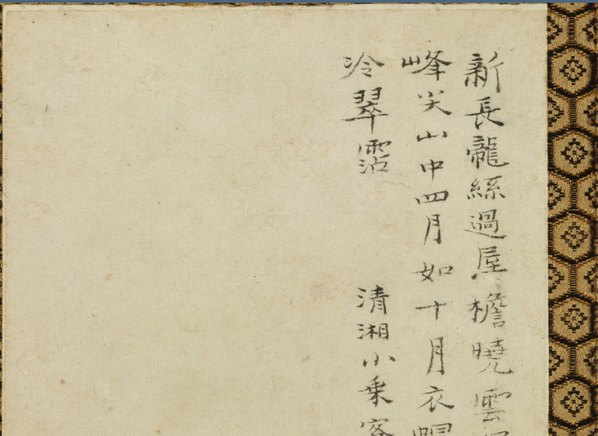 新長龍絲過屋檐曉雲
峰尖山中四月如十月衣帽
冷翠霑
清湘小乘客